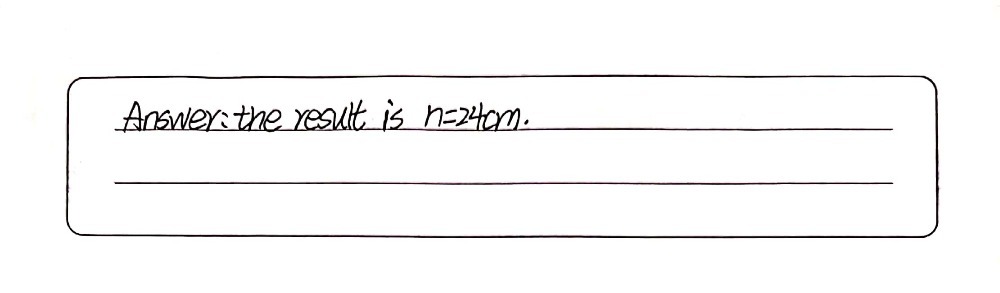 Answer: the result is n=24cm.